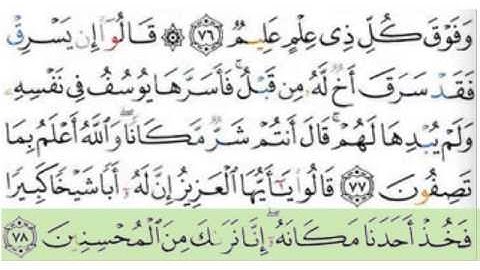 وَفَوْقَ كُلِّ ذِي عِلْمٍ عَلِيمٌ ﴿٧٦﴾ ۞ قَالُوٓا۟ إِن يَسْرِقْ
فَقَدْ سَرَقَ أَخٌ لَّهُۥ مِن قَبْلُ ۚ فَأَسَرَّهَا يُوسُفُ فِى نَفْسِهِۦ
وَلَمْ يُبْدِهَا لَهُمْ ۚ قَالَ أَنتُمْ شَرٌّ مَّكَانًا ۖ وَٱللَّهُ أَعْلَمُ بِمَا
تَصِفُونَ ﴿٧٧﴾ قَالُوا۟ يَٰٓأَيُّهَا ٱلْعَزِيزُ إِنَّ لَهُۥٓ أَبًا شَيْخًا كَبِيرًا
فَخُذْ أَحَدَنَا مَكَانَهُۥٓ ۖ إِنَّا نَرَىٰكَ مِنَ ٱلْمُحْسِنِينَ ﴿٧٨﴾